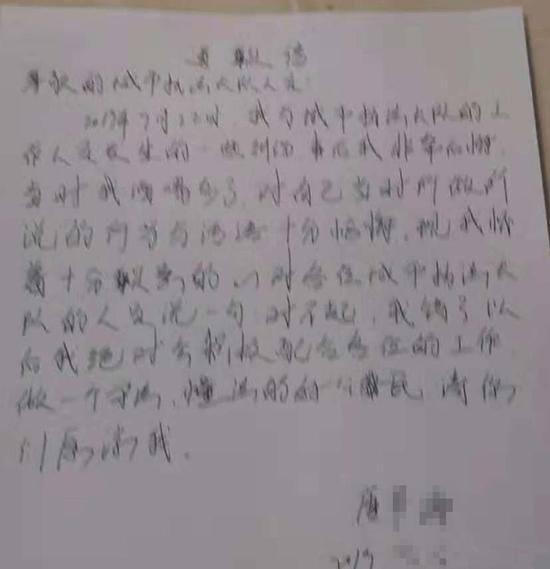 道歉信
尊敬的城中执法大队人员:
2019年7月22日,我与城中执法大队的工
作人员发生的一些纠纷,事后我非常后悔,
当时我酒喝多了,对自己当时所做所
说的行为与语语十分悔恨,现我怀
着十分歉意的心对各位城中执法大
队的人员说一句对不起,我错了以
后我绝对会积极配合各位的工作
做一个守法、懂法的的一个公民,请你
们原谅我。
2019